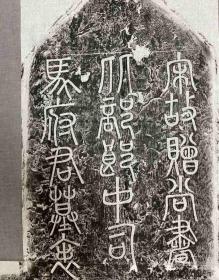 宋故贈尚書
比部郎中司
馬府君墓表